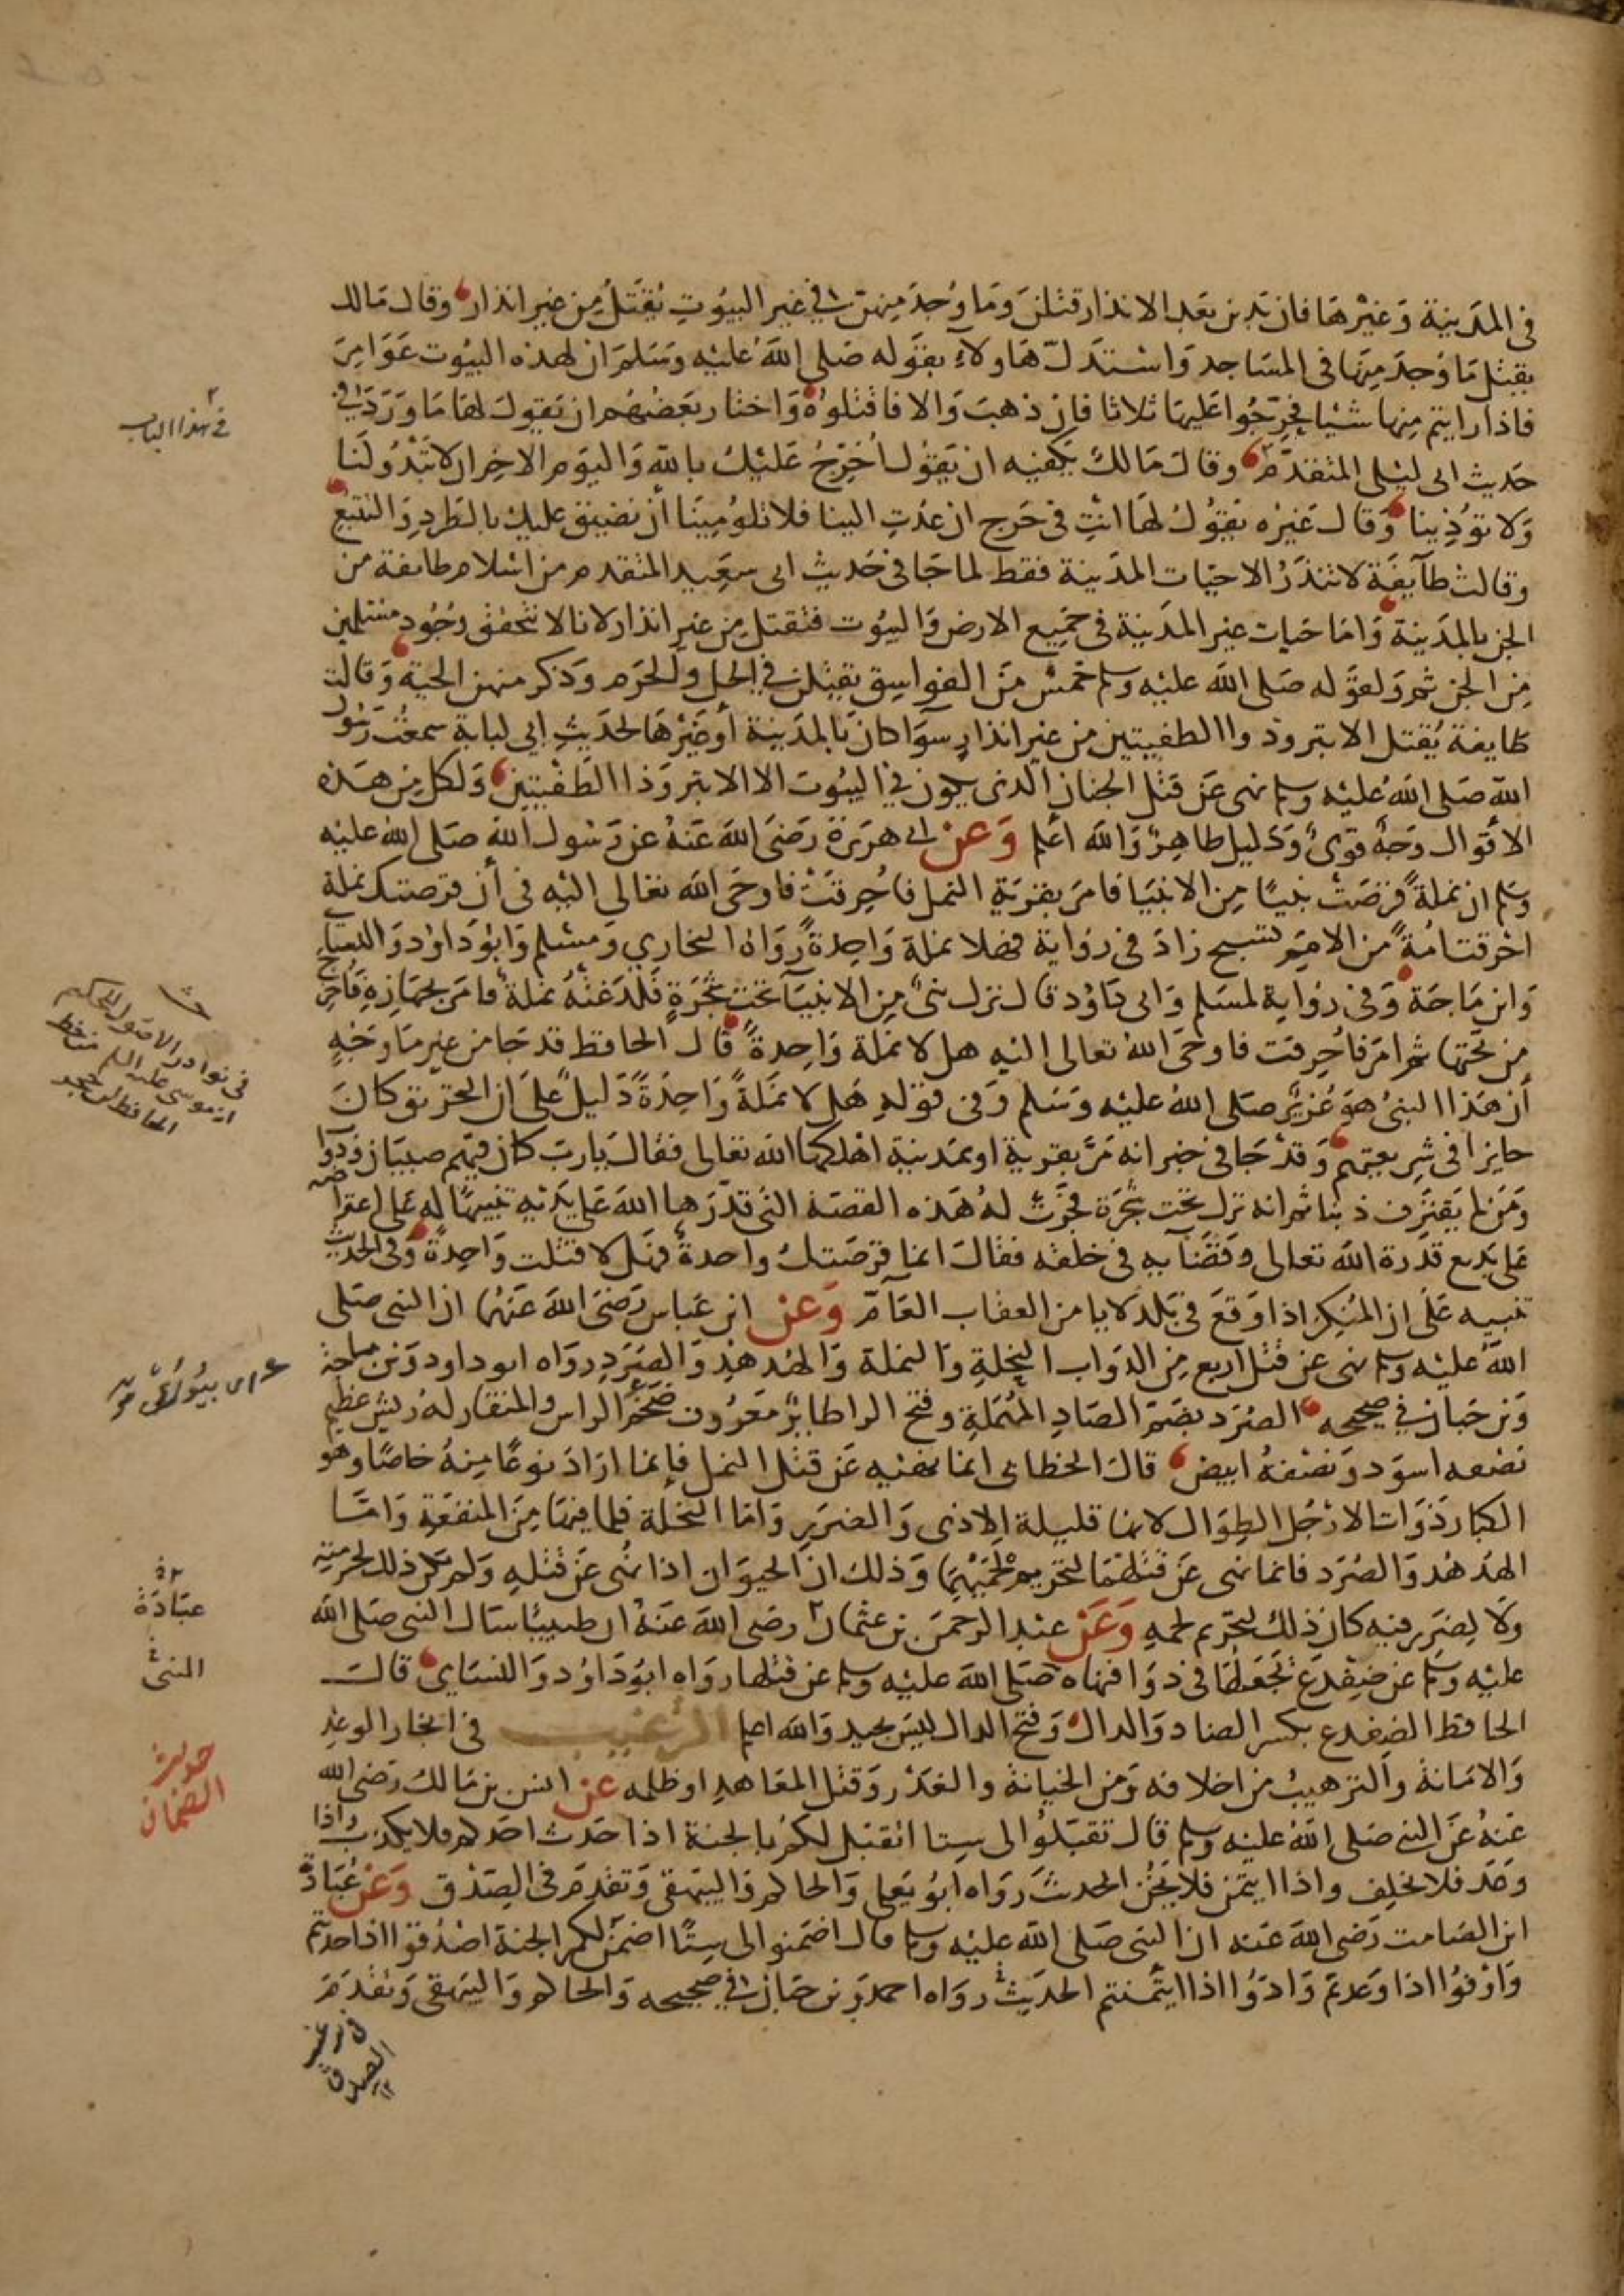 في المدينة وغيرها فان بدين بعد الانذار قتلن وما وُجد منهن في غير البيوت يُقتل من غير انذار وقال مالك
يقتل ما وُجد منها في المساجد واستدل هاولاء بقوله صلى الله عليه وسلم ان لهذه البيوت عوامر
فاذا رايتم منها شيئا فحرّجوا عليها ثلاثا فان ذهب والا فاقتلوه واختار بعضهم ان يقول لها ما ورد في
حديث ابي ليلى المتقدم وقال مالك يكفيه ان يقول اُحَرّج عليك بالله واليوم الاخر ان لا تبدُو لنا
ولا توذينا وقال غيره يقول لها انتِ في حرج ان عُدتِ الينا فلا تلومينا ان نضيق عليك بالطرد والتتبع
وقالت طآيفة لا تنذر الا حيات المدينة فقط لما جا في حديث ابي سعيد المتقدم من اسلام طايفة من
الجن بالمدينة واما حيات غير المدينة في جميع الارض والبيوت فتقتل من غير انذار لانا لا نتحقق وجود مسلمين
من الجن ثم ولقوله صلى الله عليه وسلم خمس من الفواسق يقتلن في الحل والحرم وذكر منهن الحية وقالت
طايفة يُقتل الابتر وذوا الطفيتين من غير انذار سوا كان بالمدينة أو غيرها لحديث ابي لبابة سمعت رسول
الله صلى الله عليه وسلم نهى عن قتل الجنان الذي يكون في البيوت الا الابتر وذا الطفيتين ولكل من هذه
الاقوال وجه قوي ودليل ظاهر والله اعلم وعن ابي هريرة رضي الله عنه عن رسول الله صلى الله عليه
وسلم ان نملة قرصت نبيًا من الانبيا فامر بقرية النمل فاُحرقت فاوحى الله تعالى اليه في أن قرصتك نملة
احرقت امةً من الامم تسبح زاد في رواية فهلا نملة واحدةً رواه البخاري ومسلم وابو داود والنساي
وابن ماجة وفي رواية لمسلم وابي داود قال نزل نبي من الانبيا تحت شجرة فلدغته نملة فامر بجهازه فاخرج
من تحتها ثم امر فاُحرقت فاوحى الله تعالى اليه هل لا نملة واحدةً قال الحافظ قد جا من غير ما وجه
أن هذا النبي هو عُزير صلى الله عليه وسلم وفي قوله هل لا نملةً واحدةً دليل على ان التحريق كان
جايزا في شريعتهم وقد جا في خبر انه مرّ بقرية او بمدينة اهلكها الله تعالى فقال يارب كان فيهم صبيان ودوآب
ومن لم يقترف ذنبا ثم انه نزل تحت شجرة فجرت له هذه القصة التي قدّرها الله على يديه تنبيهًا له على اعتراضه
على بديع قدرة الله تعالى وقضآيه في خلقه فقال انما قرصتك واحدةٌ فهل لا قتلت واحدةً وفي الحديث
تنبيه على ان المُنكر اذا وقع في بلد لا يامن العقاب العآمّ وعن ابن عباس رضي الله عنهُما ان النبي صلى
الله عليه وسلم نهى عن قتل اربع من الدواب النحلة والنملة والهدهد والصُرد رواه ابو داود وبن ماجة
وبن حبان في صحيحه الصُرد بضم الصاد المُهملة وفتح الرا طاير معروف ضخم الراس والمنقار له ريش عظيم
نصفه اسود ونصفه ابيض قال الخطابي انما نهيه عن قتل النمل فإنما اراد نوعًا منهُ خاصًا وهو
الكبار ذوات الارجُل الطوال لانها قليلة الاذى والضرر واما النحلة فلما فيها من المنفعة وامّا
الهدهُد والصُرد فانما نهى عن قتلهما لتحريم لحمهما وذلك ان الحيوان اذا نُهي عن قتله ولم يكن ذلك لحرمته
ولا لضرر فيه كان ذلك لتحريم لحمه وعن عبد الرحمن بن عثمان رضي الله عنه ان طبيبًا سال النبي صلى الله
عليه وسلم عن ضفدع نجعلها في دوا فنهاه صلى الله عليه وسلم عن قتلها رواه ابو داود والنساي قال
الحافظ الضفدع بكسر الضاد والدال وفتح الدال ليس بجيد والله اعلم الترغيب في انجاز الوعد
والامانة والترهيب من اخلافه ومن الخيانة والغدر وقتل المعاهد او ظلمه عن انس بن مالك رضي الله
عنه عن النبي صلى الله عليه وسلم قال تقبلوا الي ستا اتقبل لكم بالجنة اذا حدث احدكم فلا يكذب واذا
وعد فلا يخلف واذا ايتمن فلا يخُن الحديث رواه ابو يعلى والحاكم والبيهقي وتقدم في الصدق وعن عُبادة
ابن الصامت رضي الله عنه ان النبي صلى الله عليه وسلم قال اضمنوا لي ستًا اضمن لكم الجنة اصدُقوا اذا حدثتم
وأوفوا اذا وعدتم وادوا اذا ايتمنتم الحديث رواه احمد وبن حبان في صحيحه والحاكم والبيهقي وتقدم
في ترغيب
الصدق
في هذا الباب
في نوادر الاصول للحكيم
انه موسى عليه السلم من خط
الحافظ ابن حجر
عبادة
النبي
حديث
الضمان